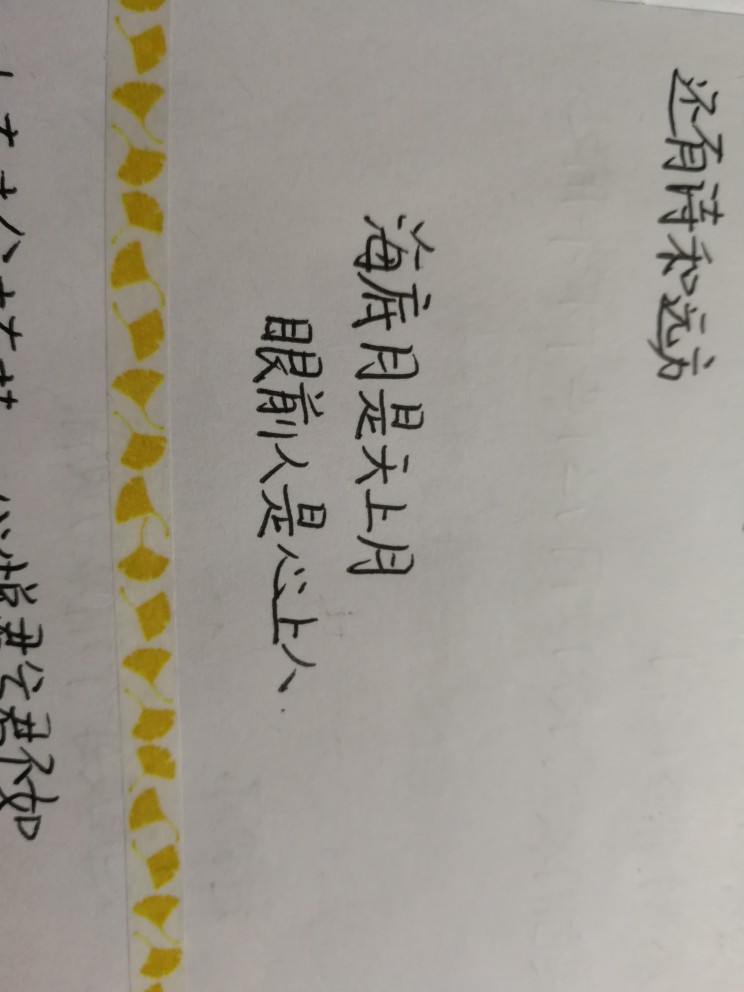 还有诗和远方
海底月是天上月
眼前人是心上人.
悦君兮君不知